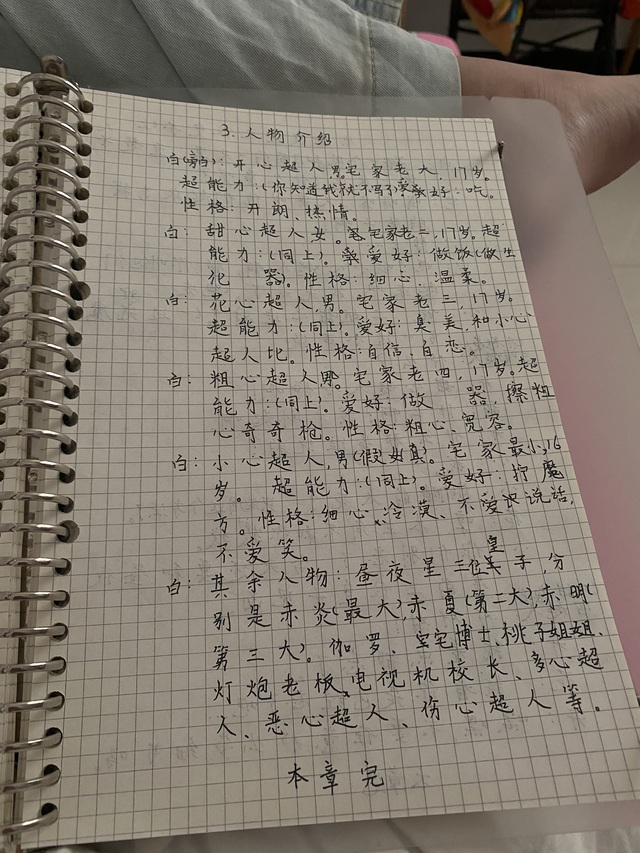 3. 人物介绍
白(旁白): 开心超人, 男。宅家老大, 17岁。
超能力:(你知道我就不写了)爱好: 吃。
性格: 开朗、热情。
白: 甜心超人女。宅家老二, 17岁。超
能力:(同上)。爱好: 做饭(做生
化 器)。性格: 细心、温柔。
白: 花心超人, 男。宅家老三, 17岁。
超能力:(同上)。爱好: 臭美, 和小心
超人比。性格: 自信、自恋。
白: 粗心超人男。宅家老四, 17岁。超
能力:(同上)。爱好: 做 器, 擦粗
心奇奇枪。性格: 粗心、宽容。
白: 小心超人, 男(假女真)。宅家最小, 16
岁。超能力:(同上)。爱好: 拧魔
方。性格: 细心、冷漠、不爱说话,
不爱笑。
白: 其余人物: 昼夜星三位皇子, 分
别是赤炎(最大), 赤夏(第二大), 赤明(
第三大)。伽罗、宅博士、桃子姐姐、
灯炮老板、电视机校长、多心超
人、恶心超人、伤心超人等。
本章完